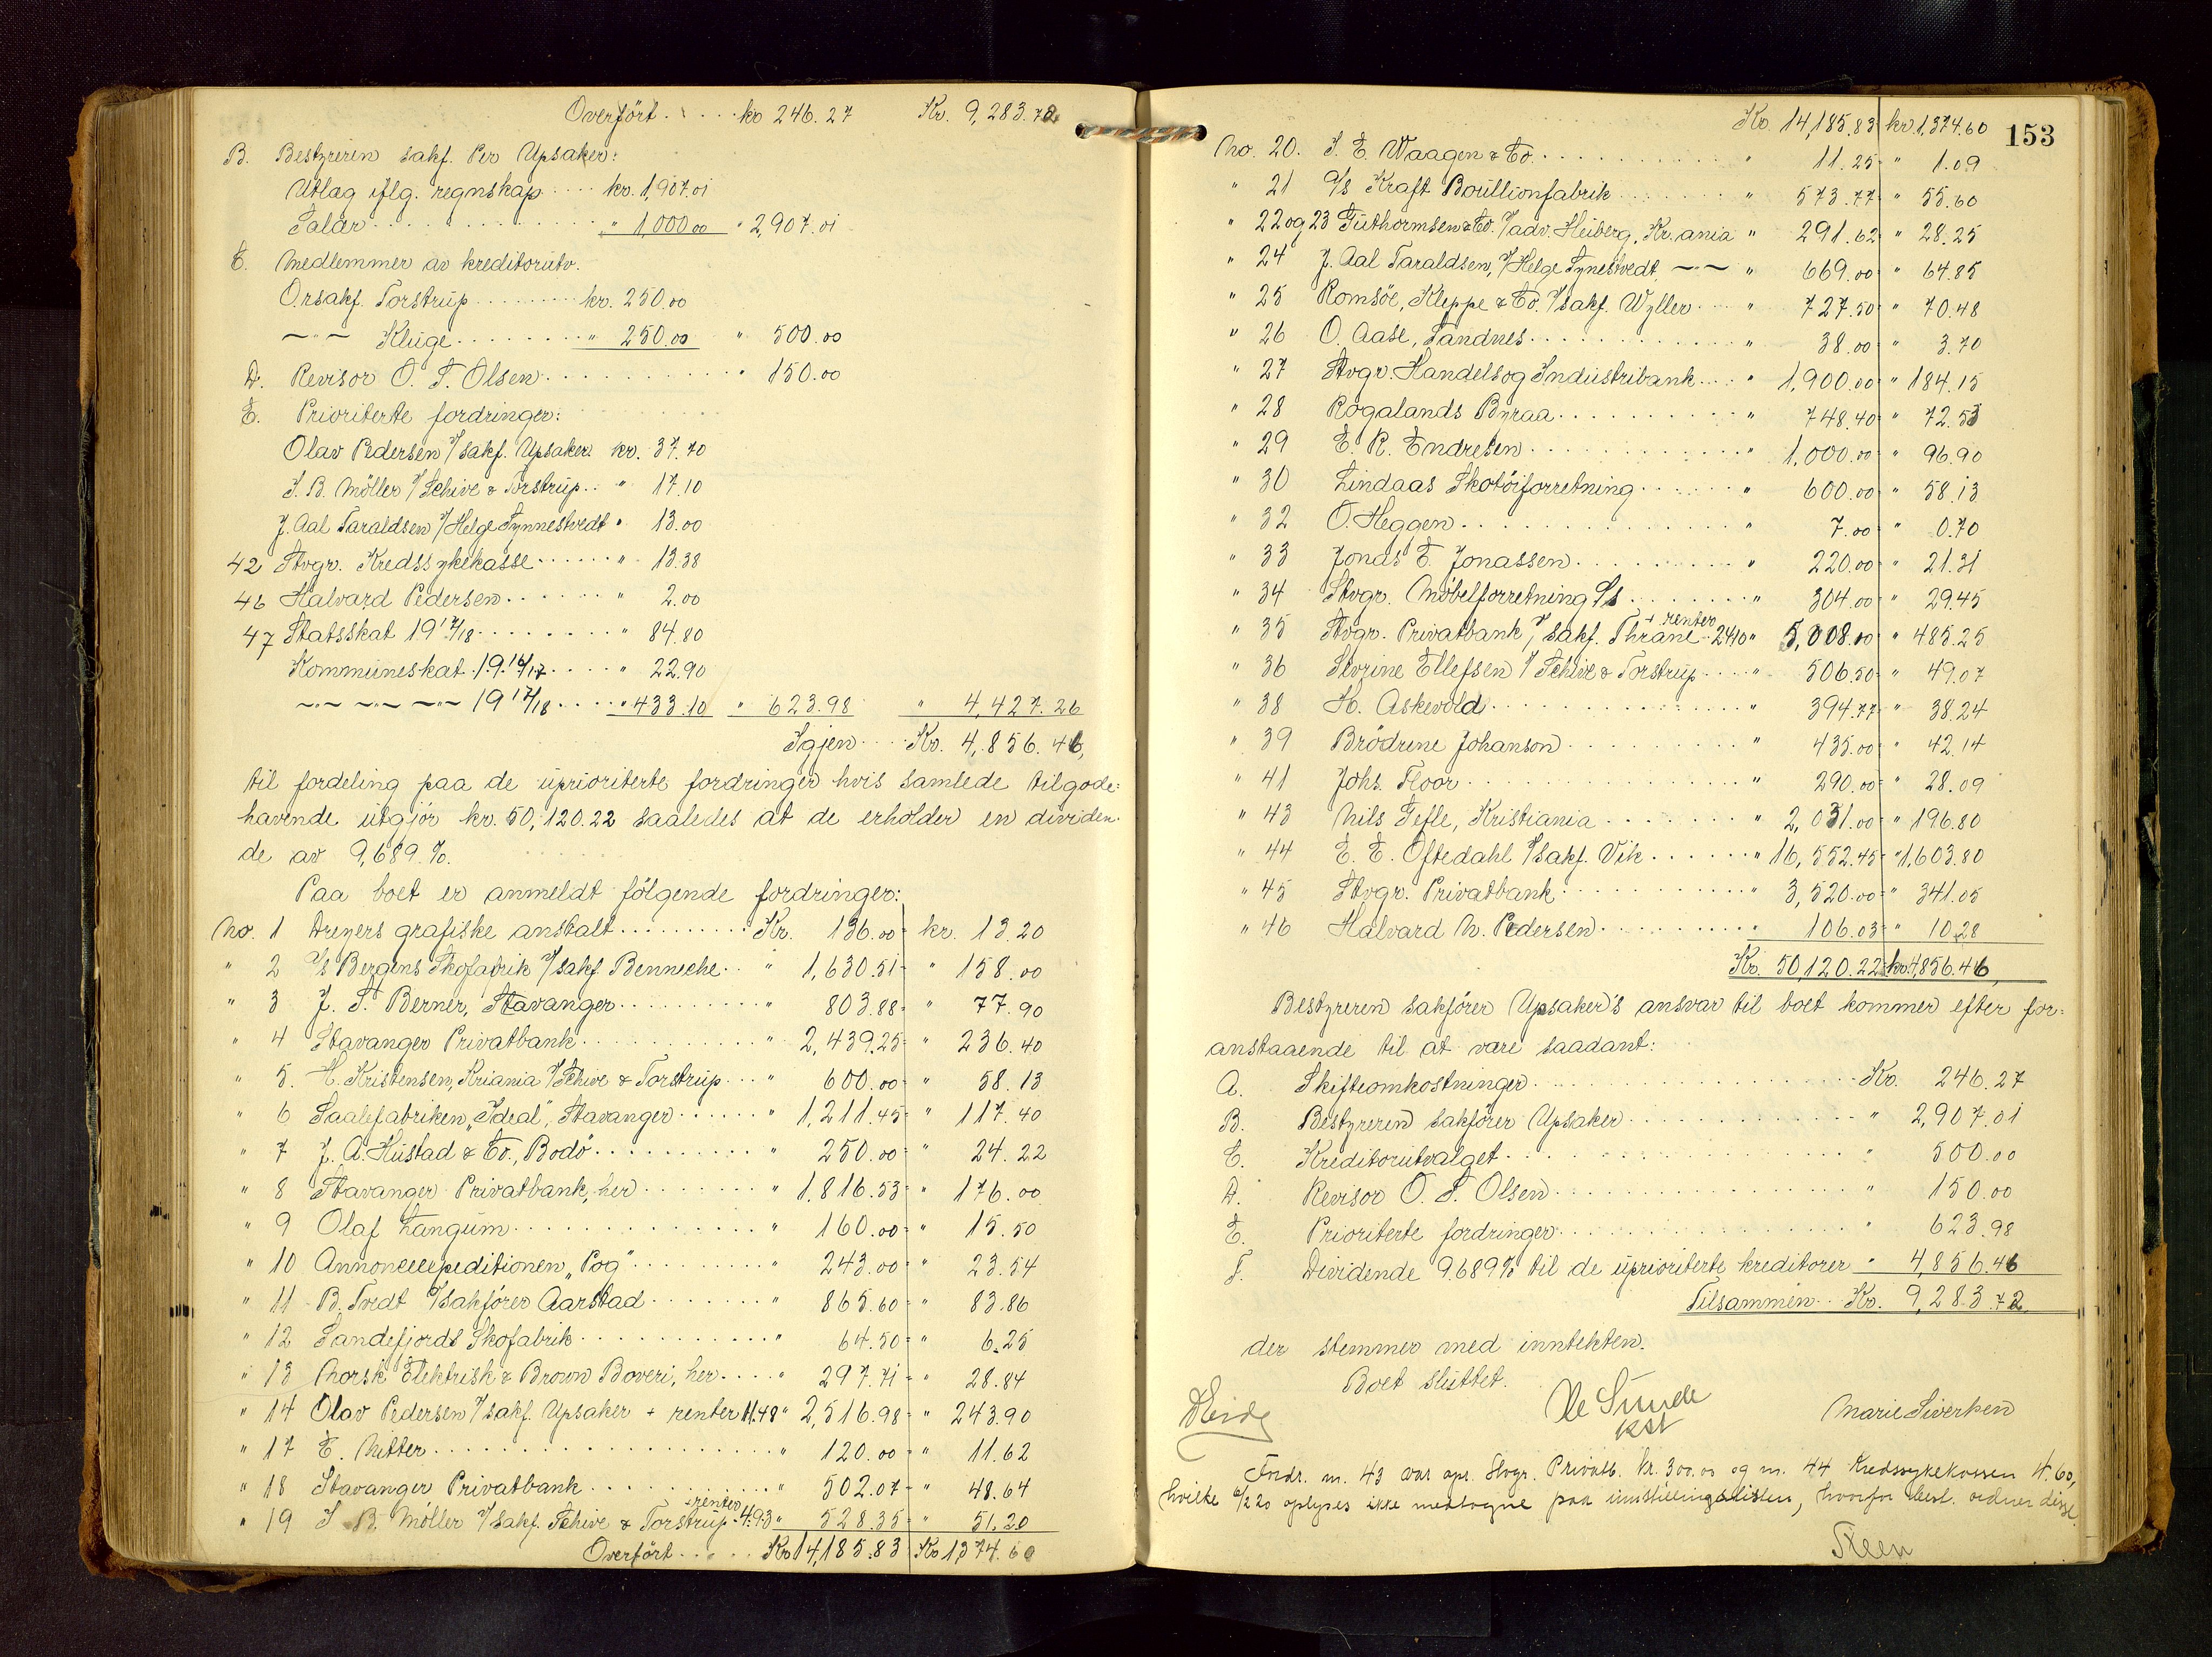 Overført . . . . . kr 246.27 Kr. 9,283.72
B. Bestyreren sakf. Per Upsaker:
Utlæg iflg. regnskap . . . . kr. 1,907.01
Salær . . . . . . . . . . " 1,000.00 " 2,907.01
C. Medlemmer av kreditorutv.
O.r.sakf. Torstrup . . . . . . . kr. 250.00
—"— Kluge . . . . . . . . " 250.00 " 500.00
D. Revisor O. T. Olsen . . . . . . . . . . " 150.00
E. Prioriterte fordringer:
Olav Pedersen v/ sakf. Upsaker. kr. 37.70
S. B. Möller v/ Schive & Torstrup . . " 17.10
J. Aal Taraldsen v/ Helge Tynnestvedt " 13.00
42 Stvgr. Kredssykekasse . . . . . . " 13.38
46 Halvard Pedersen . . . . . . . " 2.00
47 Statsskat 1917/18 . . . . . . . . " 84.80
Kommuneskat 1916/17 . . . . . " 22.90
—"— —"— —"— 1917/18 . . . . . " 433.10 " 623.98 " 4,427.26
Igjen . . . . Kr. 4,856.46,
til fordeling paa de uprioriterte fordringer hvis samlede tilgode=
havende utgjør kr. 50,120.22 saaledes at de erholder en dividen-
de av 9,689 %.
Paa boet er anmeldt følgende fordringer:
No. 1 Dreyers grafiske anstalt . . . . . . . . . Kr. 136.00 = kr. 13.20
" 2 A/S Bergens Skofabrik v/ sakf Benneche . . " 1,630.51 = " 158.00
" 3 J. S. Berner, Stavanger . . . . . . . . . . " 803.88 = " 77.90
" 4 Stavanger Privatbank . . . . . . . . . . . " 2,439.25 = " 236.40
" 5. H. Kristensen, Kr.iania v/ Schive & Torstrup . . . " 600.00 = " 58.13
" 6 Saalefabriken "Ideal", Stavanger . . . . . . " 1,211.45 = " 117.40
" 7 J. A. Hustad & Co., Bodö . . . . . . . . . . " 250.00 = " 24.22
" 8 Stavanger Privatbank, her . . . . . . . . " 1,816.53 = " 176.00
" 9 Olaf Langum . . . . . . . . . . . . . " 160.00 = " 15.50
" 10 Annonceexpeditionen "Pog" . . . . . . . . . " 243.00 = " 23.54
" 11 B. Tvedt v/ sakfører Aarstad . . . . . . . . " 865.60 = " 83.86
" 12 Sandefjords Skofabrik . . . . . . . . . . . " 64.50 = " 6.25
" 13 Norsk Elektrisk & Brown Boveri, her . . . . " 297.71 = " 28.84
" 14 Olav Pedersen v/ sakf. Upsaker + renter 11.48 " 2,516.98 = " 243.90
" 17 C. Nitter . . . . . . . . . . . . . . . . " 120.00 = " 11.62
" 18 Stavanger Privatbank . . . . . . . . . . . " 502.07 = " 48.64
" 19 S. B. Möller v/ sakf. Schive & Torstrup + renter 4.93 " 528.35 = " 51.20
Overført . . . . . Kr 14,185.83 Kr 1,374.60
153
Kr. 14,185.83 kr 1,374.60
No. 20. S. E. Waagen & Co. . . . . . . . . . . " 11.25 = " 1.09
" 21 A/S Kraft Boullionfabrik . . . . . . . . " 573.77 = " 55.60
" 22 og 23 Guthormsen & Co. v/ adv. Heiberg, Kr.ania " 291.62 = " 28.25
" 24 J. Aal Taraldsen, v/ Helge Tynestvedt —"— " 669.00 = " 64.85
" 25 Romsöe, Kleppe & Co. v/ sakf. Wyller . . . . " 727.50 = " 70.48
" 26 O. Aase, Sandnes . . . . . . . . . . . . " 38.00 = " 3.70
" 27 Stvgr. Handels og Industribank . . . " 1,900.00 = " 184.15
" 28 Rogalands Byraa . . . . . . . . . . . " 748.40 = " 72.53
" 29 E. R. Endresen . . . . . . . . . . . . " 1,000.00 = " 96.90
" 30 Lindaas Skotöiforretning . . . . . . . " 600.00 = " 58.13
" 32 O. Heggen . . . . . . . . . . . . . . . " 7.00 = " 0.70
" 33 Jonas E. Jonassen . . . . . . . . . . . " 220.00 = " 21.31
" 34 Stvgr. Möbelforretning A/S . . . . . . . . " 304.00 = " 29.45
" 35 Stvgr. Privatbank v/ sakf. Thrane + renter 24.10 " 5,008.00 = " 485.25
" 36 Sevrine Ellefsen v/ Schive & Torstrup . . . . " 506.50 = " 49.07
" 38 H. Askevold . . . . . . . . . . . . . " 394.77 = " 38.24
" 39 Brödrene Johanson . . . . . . . . . . " 435.00 = " 42.14
" 41 Johs. Floor . . . . . . . . . . . . . . " 290.00 = " 28.09
" 43 Nils Tefle, Kristiania . . . . . . . . " 2,031.00 = " 196.80
" 44 E. E. Oftedahl v/ sakf. Vik . . . . . . " 16,552.45 = " 1,603.80
" 45 Stvgr. Privatbank . . . . . . . . . . " 3,520.00 = " 341.05
" 46 Halvard N. Pedersen . . . . . . . . . " 106.03 = " 10.28
Kr. 50,120.22 = kr. 4,856.46,
Bestyreren sakfører Upsaker's ansvar til boet kommer efter for=
anstaaende til at være saadant:
A. Skifteomkostninger . . . . . . . . . . . . . . Kr. 246.27
B. Bestyreren sakfører Upsaker . . . . . . . . . . . " 2,907.01
C. Kreditorutvalget . . . . . . . . . . . . . . . " 500.00
D. Revisor O. T. Olsen . . . . . . . . . . . . . " 150.00
E. Prioriterte fordringer . . . . . . . . . . . . . " 623.98
F. Dividende 9.689 % til de uprioriterte kreditorer " 4,856.46
Tilsammen . . Kr. 9,283.72.
der stemmer med inntekten.
Boet sluttet.
Sunde
kst
Marie Siverksen
Fordr. nr. 43 var opr. Stvgr. Privatb. kr. 300.00 og nr. 44 Kredssykekassen 4.60,
hvilke 6/2 20 oplyses ikke medtagne paa innstillingslisten, hvorfor best. ordner disse.
Steen